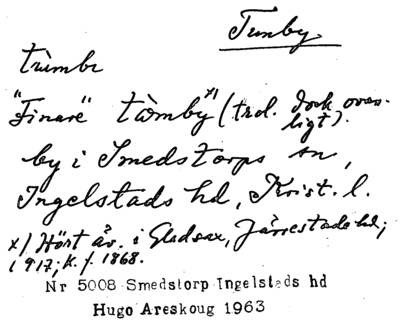 Tunby
trùmbı
"Finare" tàmby x) (trol. dock ovan-
ligt).
by i Smedstorps sn,
Ingelstads hd, Krist. l.
x) Hört åv. i Gladsax, Järrestads hd;
i 917; K. f. 1868.
Nr 5008 Smedstorp Ingelstads hd
Hugo Areskoug 1963